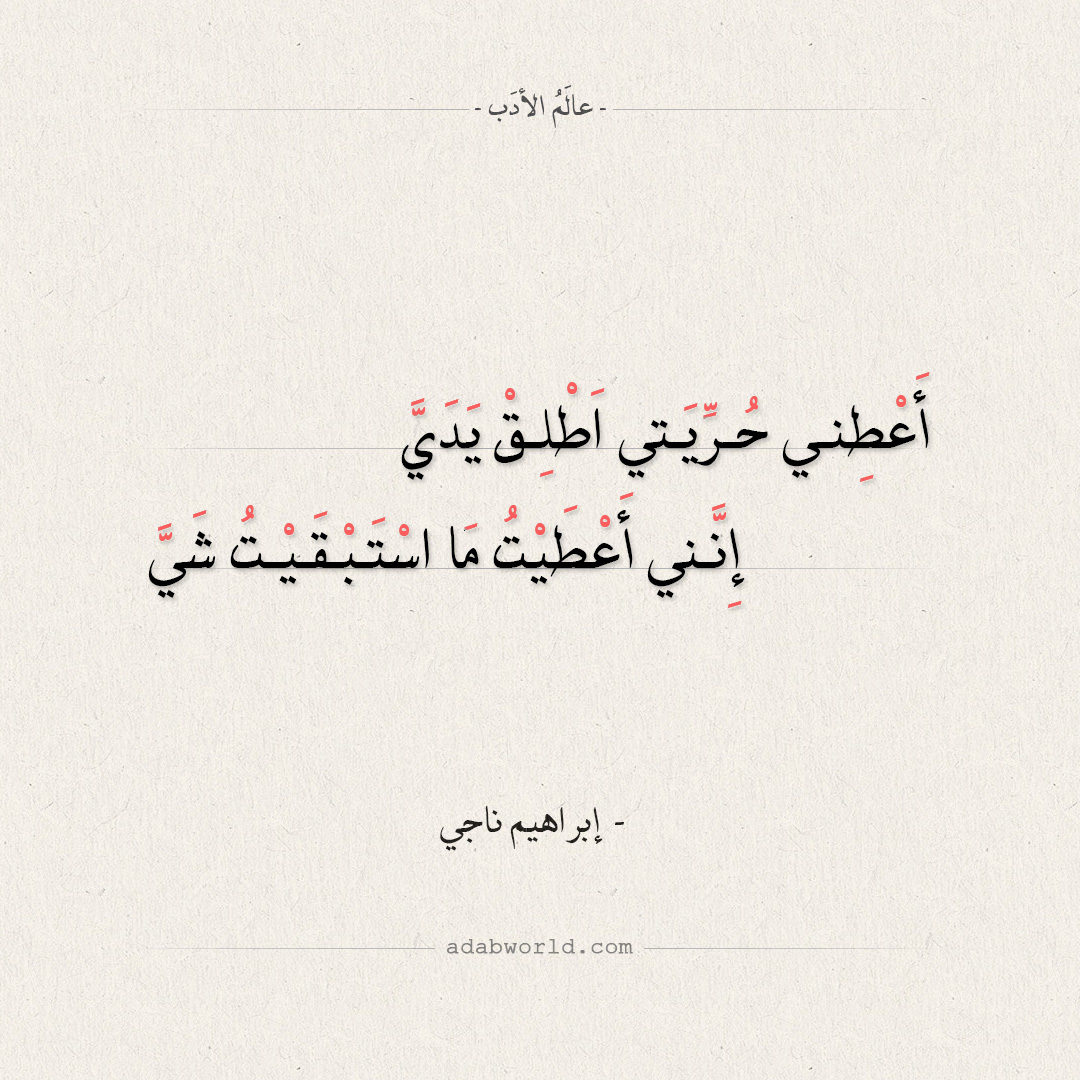 - عالَمُ الأدَب -
أَعْطِني حُـرِّيَـتي اَطْلِـقْ يَدَيَّ
إِنَّـني أَعْطَيْتُ مَا اسْتَـبْـقَـيْـتُ شَيَّ
- إبراهيم ناجي
adabworld.com